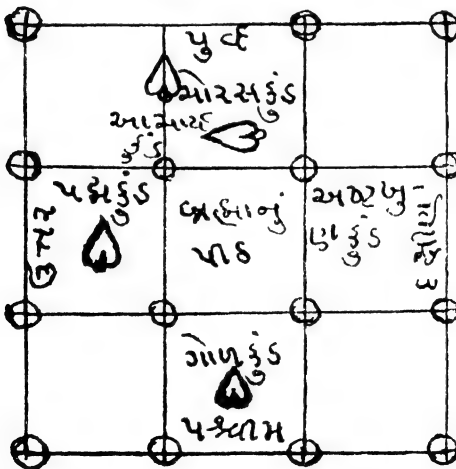 પુર્વ
ચોરસકુંડ
આચાર્ય
કુંડ
પદ્મકુંડ
ઉત્તર
બ્રહ્માનું
પીઠ
અષ્ટખુ-
ણકુંડ
દક્ષીણ
ગોળકુંડ
પશ્ચીમ